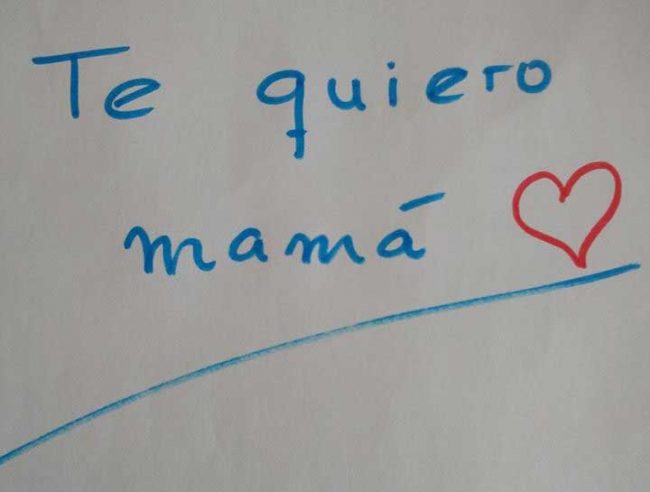 Te quiero
mamá